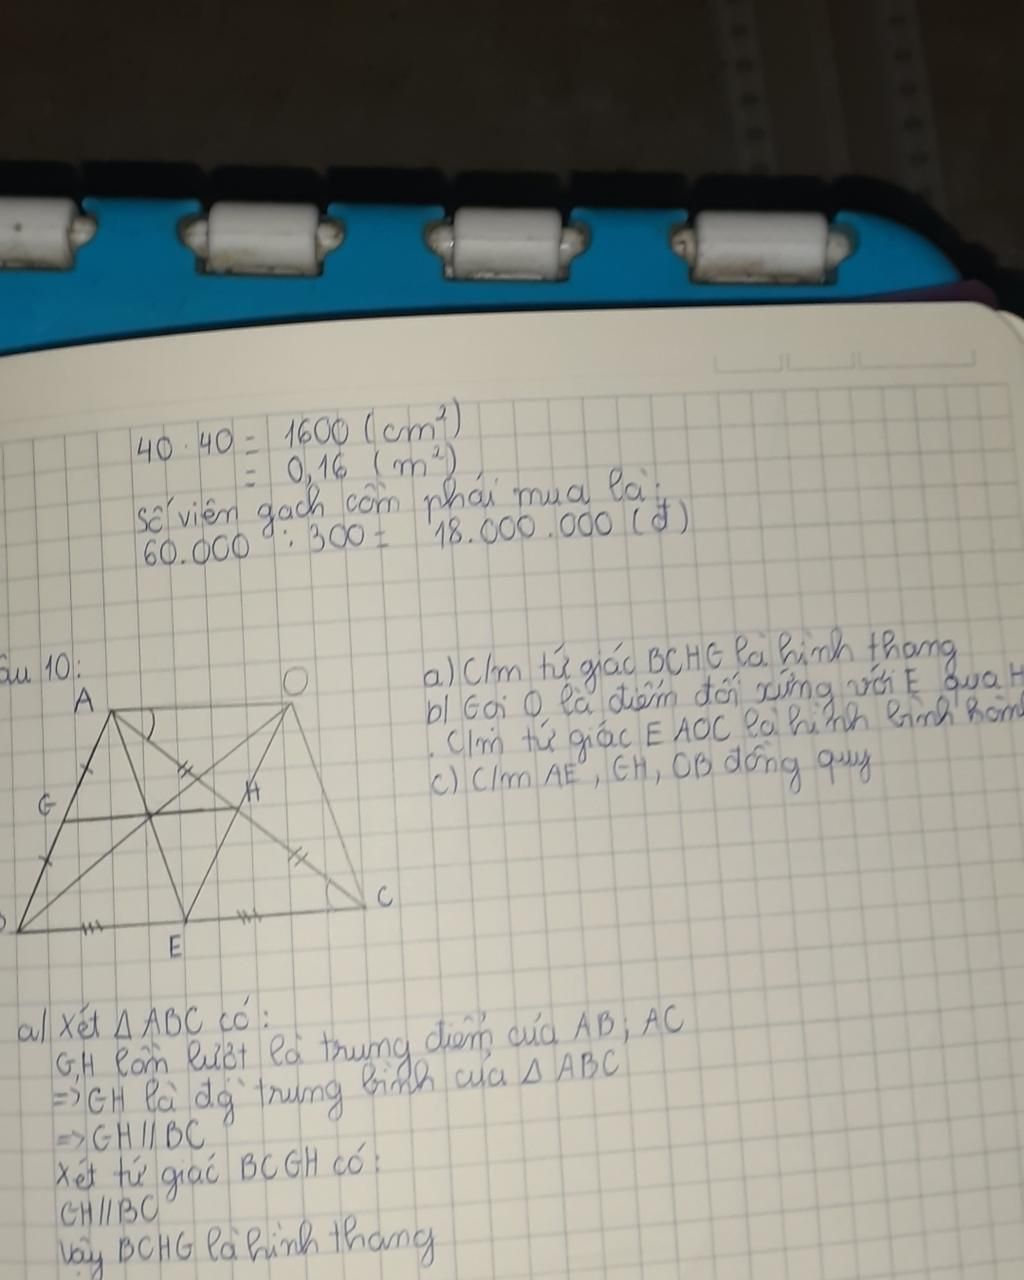 40 . 40 = 1600 (cm²)
= 0,16 (m²)
số viên gạch cần phải mua là:
60.000 : 300 = 18.000.000 (đ)
âu 10:
a) C/m tứ giác BCHG là hình thang
b) Gọi O là điểm đối xứng với E qua H
. C/m tứ giác EAOC là hình bình hàn
c) C/m AE, GH, OB đồng quy
A
O
G
H
C
E
a) Xét Δ ABC có:
G,H lần lượt là trung điểm của AB; AC
=> GH là đg trung bình của Δ ABC
=> GH // BC
Xét tứ giác BCGH có:
GH // BC
Vậy BCHG là hình thang